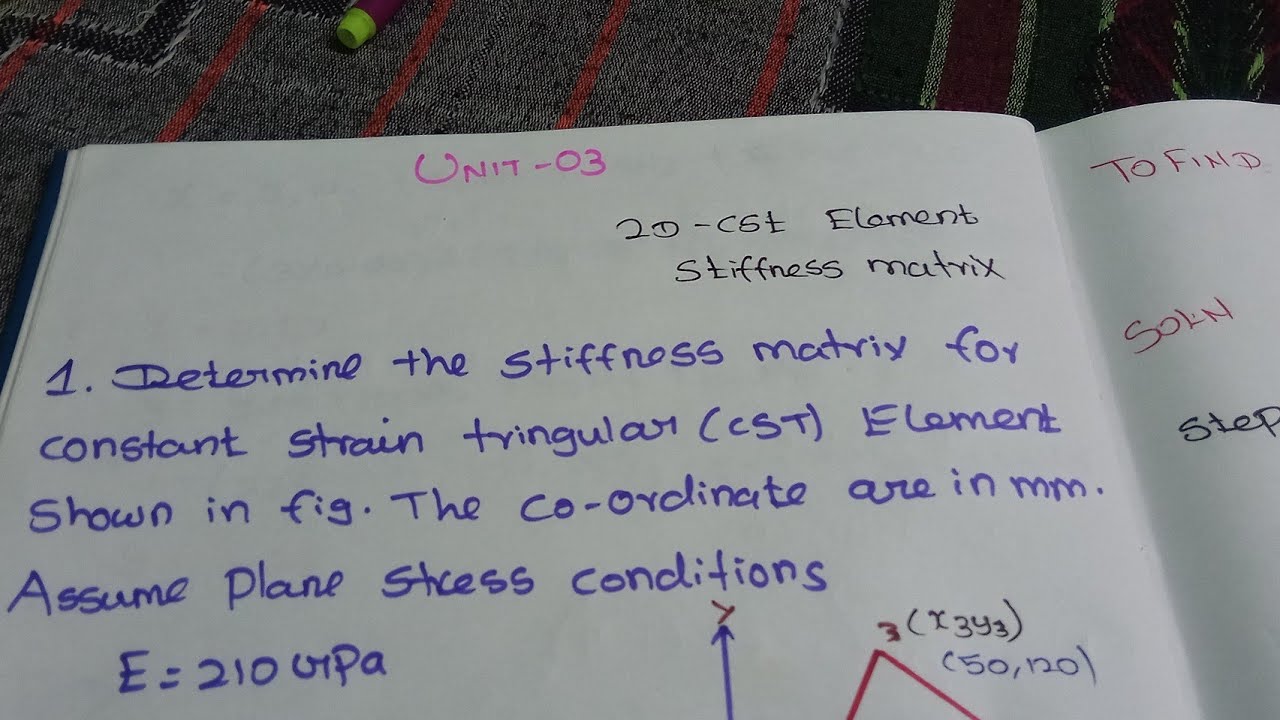 UNIT-03
2D-CSt Element
Stiffness matrix
1. Determine the stiffness matrix for
constant strain tringular (CST) Element
Shown in fig. The co-ordinate are in mm.
Assume Plane stress conditions
E = 210 GPa
Y
3 (x3y3)
(50,120)
TO FIND
SOLN
Step